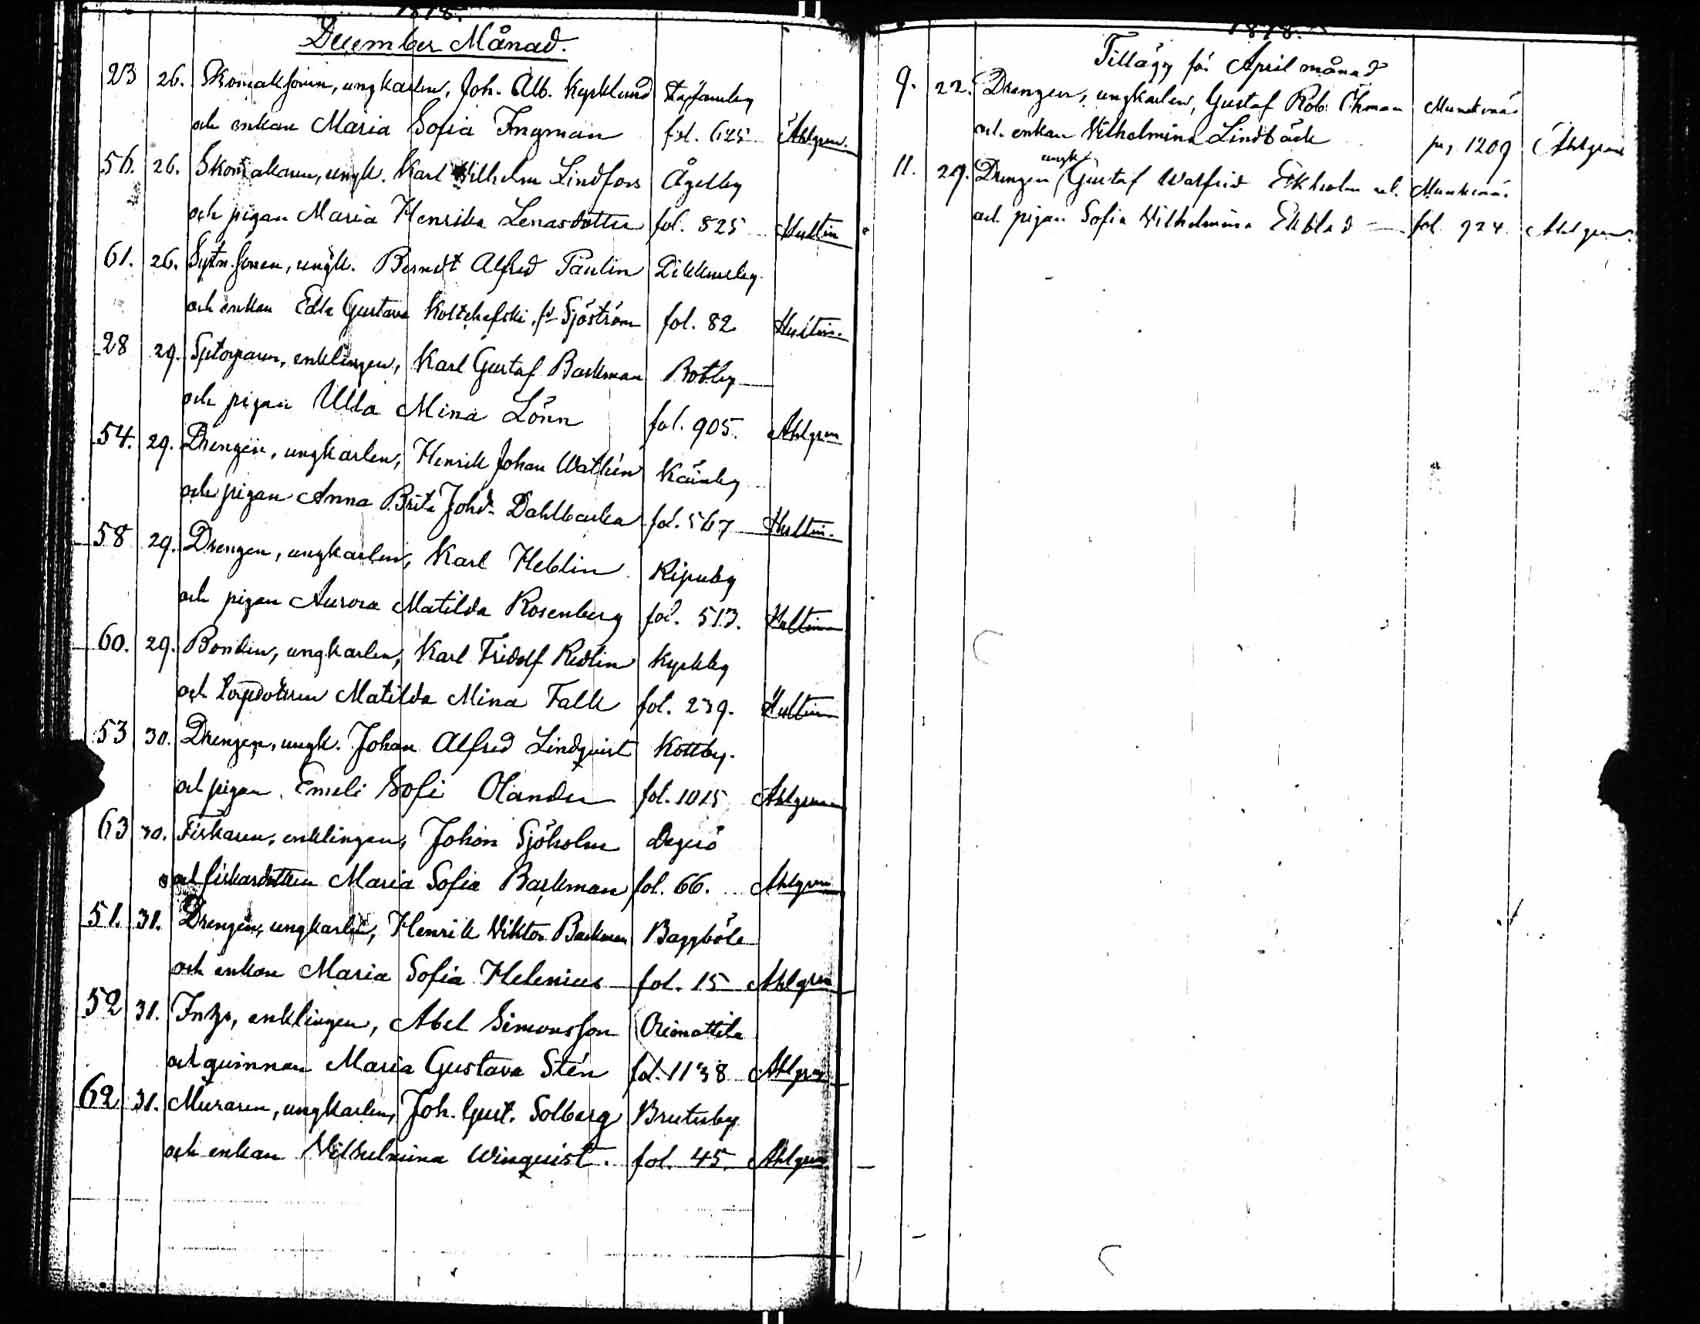 1878.
December Månad.
23 26. Skomak.sonen, ungkarlen, Joh. Alb. Kyrklund
och enkan Maria Sofia Ingman fol. 625 Ahlgren.
56. 26. Skomakaren, ungk. Karl Vilhelm Lindfors
och pigan Maria Henrika Lenasdotter fol. 825 Hultin
61. 26. ungk. Berndt Alfred Paulin Dickursby
och enkan Edla Gustava Sjöström fol. 82 Hultin.
28 29. enklingen, Karl Gustaf Barkman Botby
och pigan Ulla Mina Lönn fol. 905. Ahlgren
54. 29. Drengen, ungkarlen, Henrik Johan
och pigan Anna Brita Johd. Dahlbacka fol. 567 Hultin.
58 29. Drengen, ungkarlen, Karl Heblin
och pigan Aurora Matilda Rosenberg fol. 513. Hultin
60. 29. Bonden, ungkarlen, Karl Fridolf Redlin Kyrkby
och Matilda Mina Falk fol. 239. Hultin
53 30. Drengen, ungk. Johan Alfred Lindqvist Kottby.
och pigan Emeli Sofi Olander fol. 1015 Ahlgren
63 30. Fiskaren, enklingen, Johan Sjöholm Degerö
och fiskardottren Maria Sofia Barkman fol. 66. Ahlgren
51. 31. Drengen, ungkarlen, Henrik Viktor Backman Baggböle
och enkan Maria Sofia Helenius fol. 15 Ahlgren
52 31. enklingen, Abel Simonsson Orimattila
och quinnan Maria Gustava Stén fol. 1138 Ahlgren
62 31. Muraren, ungkarlen, Joh. Gust. Solberg
och enkan Vilhelmina Winquist. fol. 45 Ahlgren
1878.
Tillägg för April månad
9. 22. Drengen, ungkarlen, Gustaf Rob. Öhman Munksnäs
och enkan Vilhelmina Lindbäck pag 1209 Ahlgren
11. 29. Drengen ungk. Gustaf Walfrid Ekholm Munksnäs
och pigan Sofia Vilhelmina Ekblad fol. 924. Ahlgren.